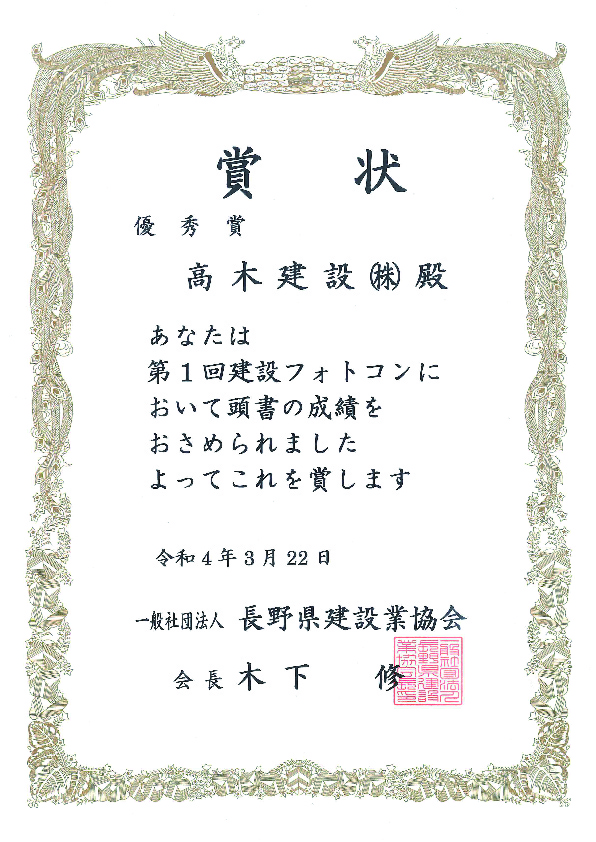 賞状
優秀賞
高木建設㈱殿
あなたは
第1回建設フォトコンに
おいて頭書の成績を
おさめられました
よってこれを賞します
令和4年3月22日
一般社団法人 長野県建設業協会
会長 木下 修